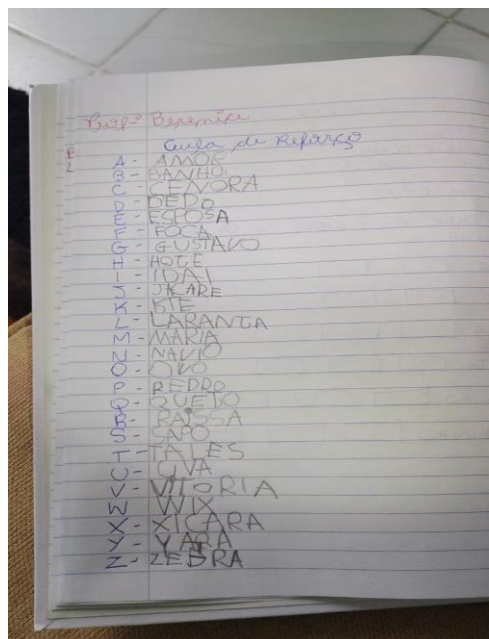 Profª Berenice
Aula de Reforço
A - AMOR
B - BANHO
C - CENORA
D - DEDO
E - ESPOSA
F - FOCA
G - GUSTAVO
H - HOTE
I - IDAI
J - JACARE
K - KIE
L - LARANTGA
M - MARIA
N - NAVIO
O - OVO
P - PEDRO
Q - QUEIJO
R - RAISSA
S - SAPO
T - TALES
U - UVA
V - VITORIA
W - WIX
X - XICARA
Y - YARA
Z - ZEBRA